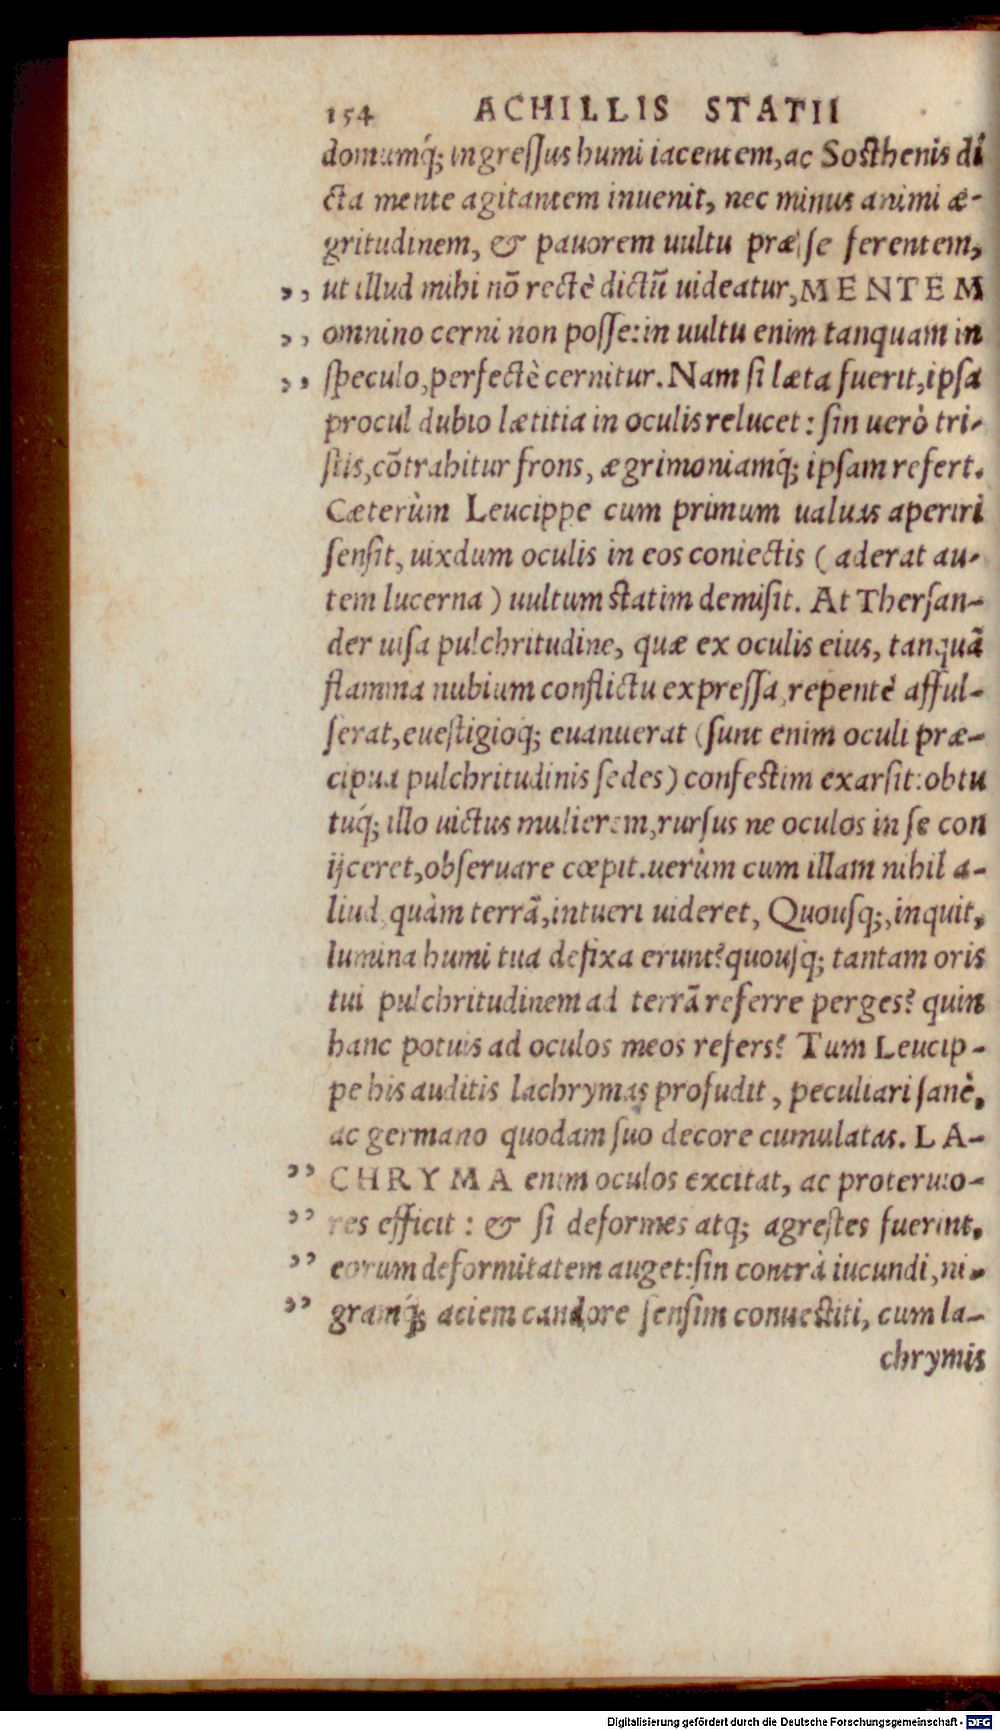 154 ACHILLIS STATII
domumq́; ingreſſus humi iacentem, ac Soſthenis di
cta mente agitantem inuenit, nec minus animi æ-
gritudinem, & pauorem uultu præ ſe ferentem,
,, ut illud mihi nõ rectè dictũ uideatur, MENTEM
,, omnino cerni non poſſe: in uultu enim tanquam in
,, ſpeculo, perfectè cernitur. Nam ſi læta fuerit, ipſa
procul dubio lætitia in oculis relucet: ſin uerò tri-
ſtis, cõtrahitur frons, ægrimoniamq́; ipſam refert.
Cæterùm Leucippe cum primum ualuas aperiri
ſenſit, uixdum oculis in eos coniectis (aderat au-
tem lucerna) uultum ſtatim demiſit. At Therſan-
der uiſa pulchritudine, quæ ex oculis eius, tanquã
flamma nubium conflictu expreſſa, repentè afful-
ſerat, eueſtigioq́; euanuerat (ſunt enim oculi præ-
cipua pulchritudinis ſedes) confeſtim exarſit: obtu
tuq́; illo uictus mulierem, rurſus ne oculos in ſe con
ijceret, obſeruare cœpit. uerùm cum illam nihil a-
liud, quàm terrã, intueri uideret, Quouſq;, inquit,
lumina humi tua defixa erunt? quouſq; tantam oris
tui pulchritudinem ad terrã referre perges? quin
hanc potius ad oculos meos refers? Tum Leucip-
pe his auditis lachrymas profudit, peculiari ſanè,
ac germano quodam ſuo decore cumulatas. LA-
,, CHRYMA enim oculos excitat, ac proteruio-
,, res efficit: & ſi deformes atq; agreſtes fuerint,
,, eorum deformitatem auget: ſin contrà iucundi, ni-
,, gramq́; aciem candore ſenſim conueſtiti, cum la-
chrymis
Digitalisierung gefördert durch die Deutsche Forschungsgemeinschaft - DFG